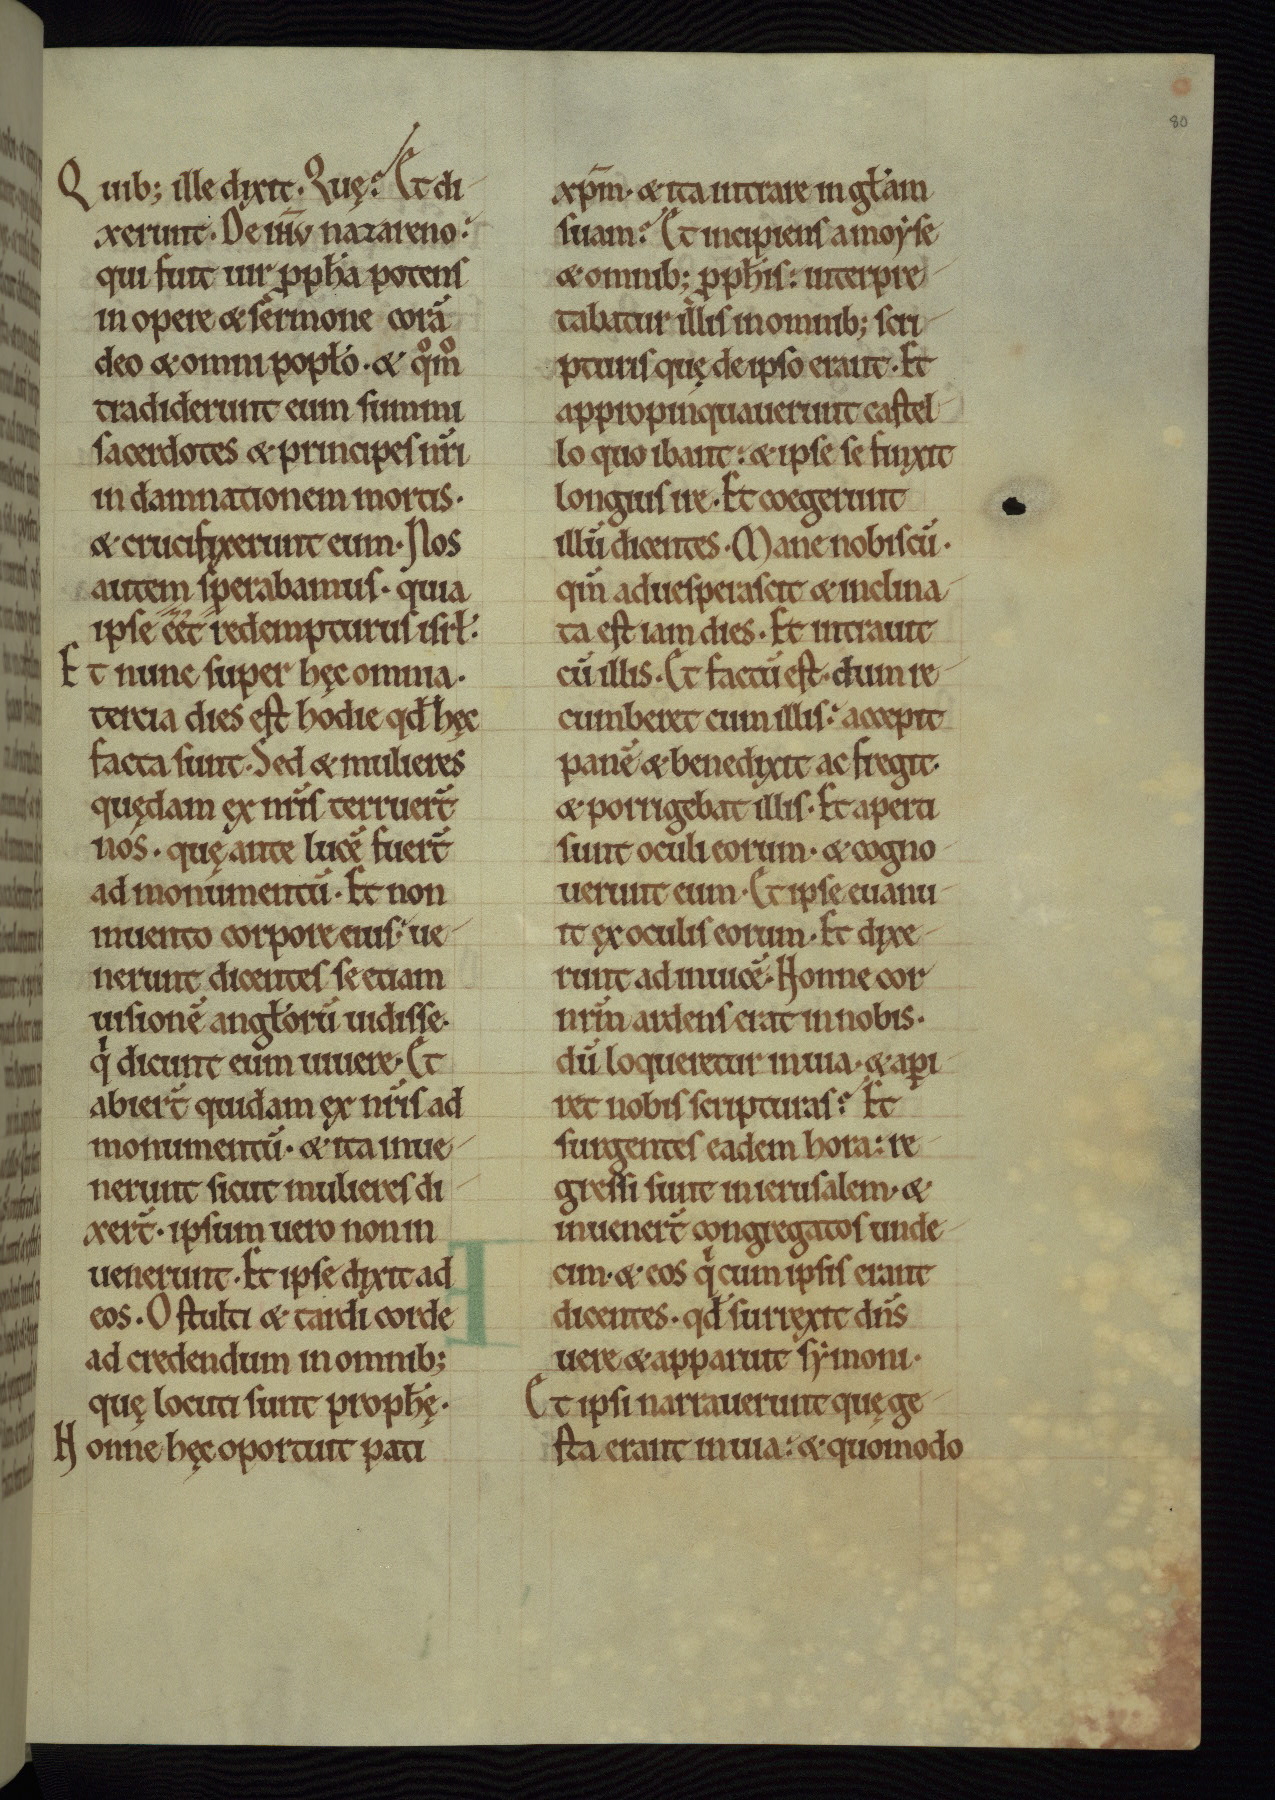 80
Quib; ille dixit. Quę? Et di
xerunt. De ihu nazareno?
qui fuit uir ppha potens
in opere & sermone corā
deo & omni poplo. & qm̄o
tradiderunt eum summi
sacerdotes & principes nr̄i
in damnationem mortis.
& crucifixerunt eum. Nos
autem sperabamus. quia
ipse eēt redempturus isrl.
Et nunc super hęc omnia.
tercia dies est hodie qđ hęc
facta sunt. Sed & mulieres
quędam ex nr̄is terruer̄t
nos. quę ante lucē fuer̄t
ad monumentū. Et non
inuento corpore eius: ue
nerunt dicentes se etiam
uisionē angłorū uidisse.
qi dicunt eum uiuere. Et
abier̄t quidam ex nr̄is ad
monumentū. & ita inue
nerunt sicut mulieres di
xer̄t. ipsum uero non in
uenerunt. Et ipse dixit ad
eos. O stulti & tardi corde
ad credendum in omnib;
quę locuti sunt prophę.
Nonne hęc oportuit pati
xpm̄. & ita intrare in głam
suam? Et incipiens a moyse
& omnib; pphis: interpre
tabatur illis in omnib; scri
pturis quę de ipso erant. Et
appropinquauerunt castel
lo quo ibant: & ipse se finxit
longius ire. Et coegerunt
illū dicentes. Mane nobiscū.
qm̄ aduesperascit & inclina
ta est iam dies. Et intrauit
cū illis. Et factū est. dum re
cumberet cum illis: accepit
panē & benedixit ac fregit.
& porrigebat illis. Et aperti
sunt oculi eorum. & cogno
uerunt eum. Et ipse euanu
it ex oculis eorum. Et dixe
runt ad inuicē. Nonne cor
nr̄m ardens erat in nobis.
dū loqueretur in uia. & api
ret nobis scripturas? Et
surgentes eadem hora: re
gressi sunt in ierusalem. &
inuener̄t congregatos unde
cim. & eos qi cum ipsis erant
dicentes. qđ surrexit dn̄s
uere & apparuit symoni.
Et ipsi narrauerunt quę ge
sta erant in uia: & quomodo